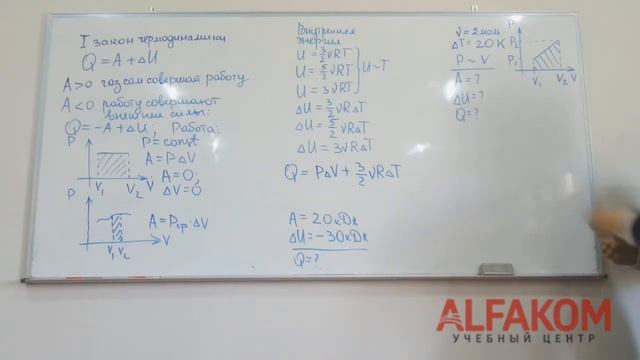 I закон термодинамики
Q = A + ΔU
A>0 газ сам совершает работу
A<0 работу совершают
внешние силы:
Q = -A + ΔU, Работа:
P
V₁ V₂ V
P = const
A = PΔV
A = 0;
ΔV = 0
P
V₁ V₂ V
A = Pср·ΔV
Внутренняя
энергия
U = 3/2 νRT
U = 5/2 νRT
U = 3νRT
U~T
ΔU = 3/2 νRΔT
ΔU = 5/2 νRΔT
ΔU = 3νRΔT
Q = PΔV + 3/2 νRΔT
A = 20кДж
ΔU = -30кДж
Q = ?
ν = 2 мол
ΔT = 20K
P ~ V
A = ?
ΔU = ?
Q = ?
P
P₂
P₁
V₁ V₂ V
ALFAKOM
УЧЕБНЫЙ ЦЕНТР